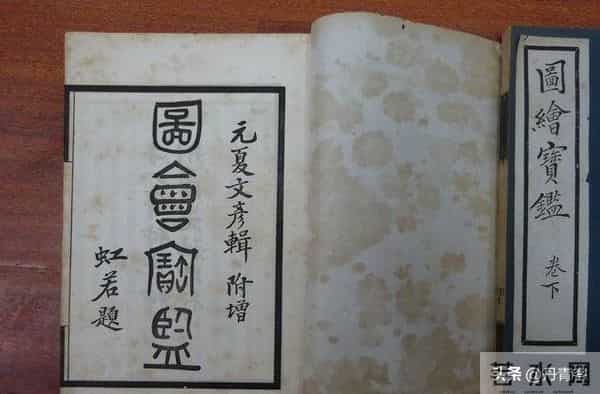 圖繪寶鑑
卷下
元夏文彦輯 附增
圖會寶監
虹若題
头条 @丹青淼